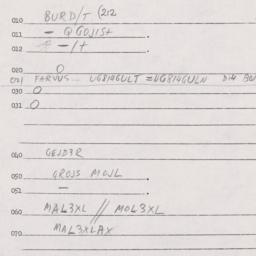 010 BURD/T (212
011 - QGOJIST .
012 -/+ .
020 O
021 FARVUS... UGB14GULT = UGB14GULN D14
030 O
031 O
040 GEJD3R
050 GROJS MOJL .
051 - .
060 MAL3XL // MOL3XL
070 MAL3XLAX